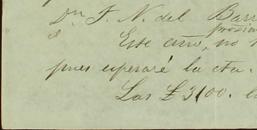 Dn F. N. del Barr
Este año, no
pues esperaré la cta.
Las £3100.